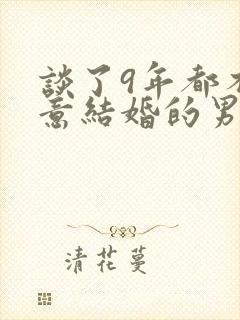 談了9年都
意結婚的男
清花蔓